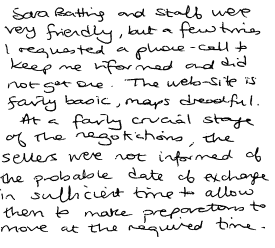 Sara Batting and staff were
very friendly, but a few times
I requested a phone-call to
keep me informed and did
not get one. The web-site is
fairly basic, maps dreadful.
At a fairly crucial stage
of the negotiations, the
sellers were not informed of
the probable date of exchange
in sufficient time to allow
them to make preparations to
move at the required time.